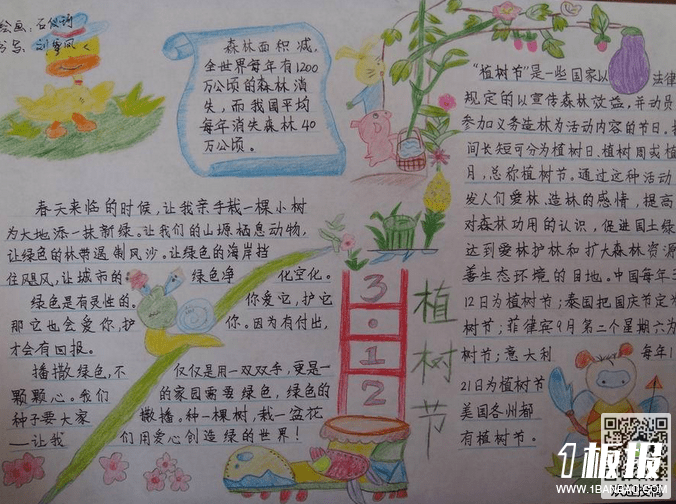 绘画:石俊琦
书写:刘雪凤
森林面积减,
全世界每年有1200
万公顷的森林消
失,而我国平均
每年消失森林40
万公顷。
春天来临的时候,让我亲手栽一棵小树
为大地添一抹新绿。让我们的山塬栖息动物,
让绿色的林带遏制风沙。让绿色的海岸挡
住飓风,让城市的绿色净化空化。
绿色是有灵性的。你爱它,护它
那它也会爱你,护你。因为有付出,
才会有回报。
播撒绿色,不仅仅是用一双双手,更是一
颗颗心。我们的家园需要绿色,绿色的
种子要大家撒播。种一棵树,栽一盆花
——让我们用爱心创造绿的世界!
3·12
植树节
"植树节"是一些国家以法律
规定的以宣传森林效益,并动员
参加义务造林为活动内容的节日。
间长短可分为植树日、植树周或植
月,总称植树节。通过这种活动
发人们爱林、造林的感情,提高
对森林功用的认识,促进国土绿
达到爱林护林和扩大森林资源
善生态环境的目地。中国每年3
12日为植树节;泰国把国庆节定为
树节;菲律宾9月第二个星期六为
树节;意大利每年1
21日为植树节
美国各州都
有植树节。
1板报
WWW.1BANBAO.COM